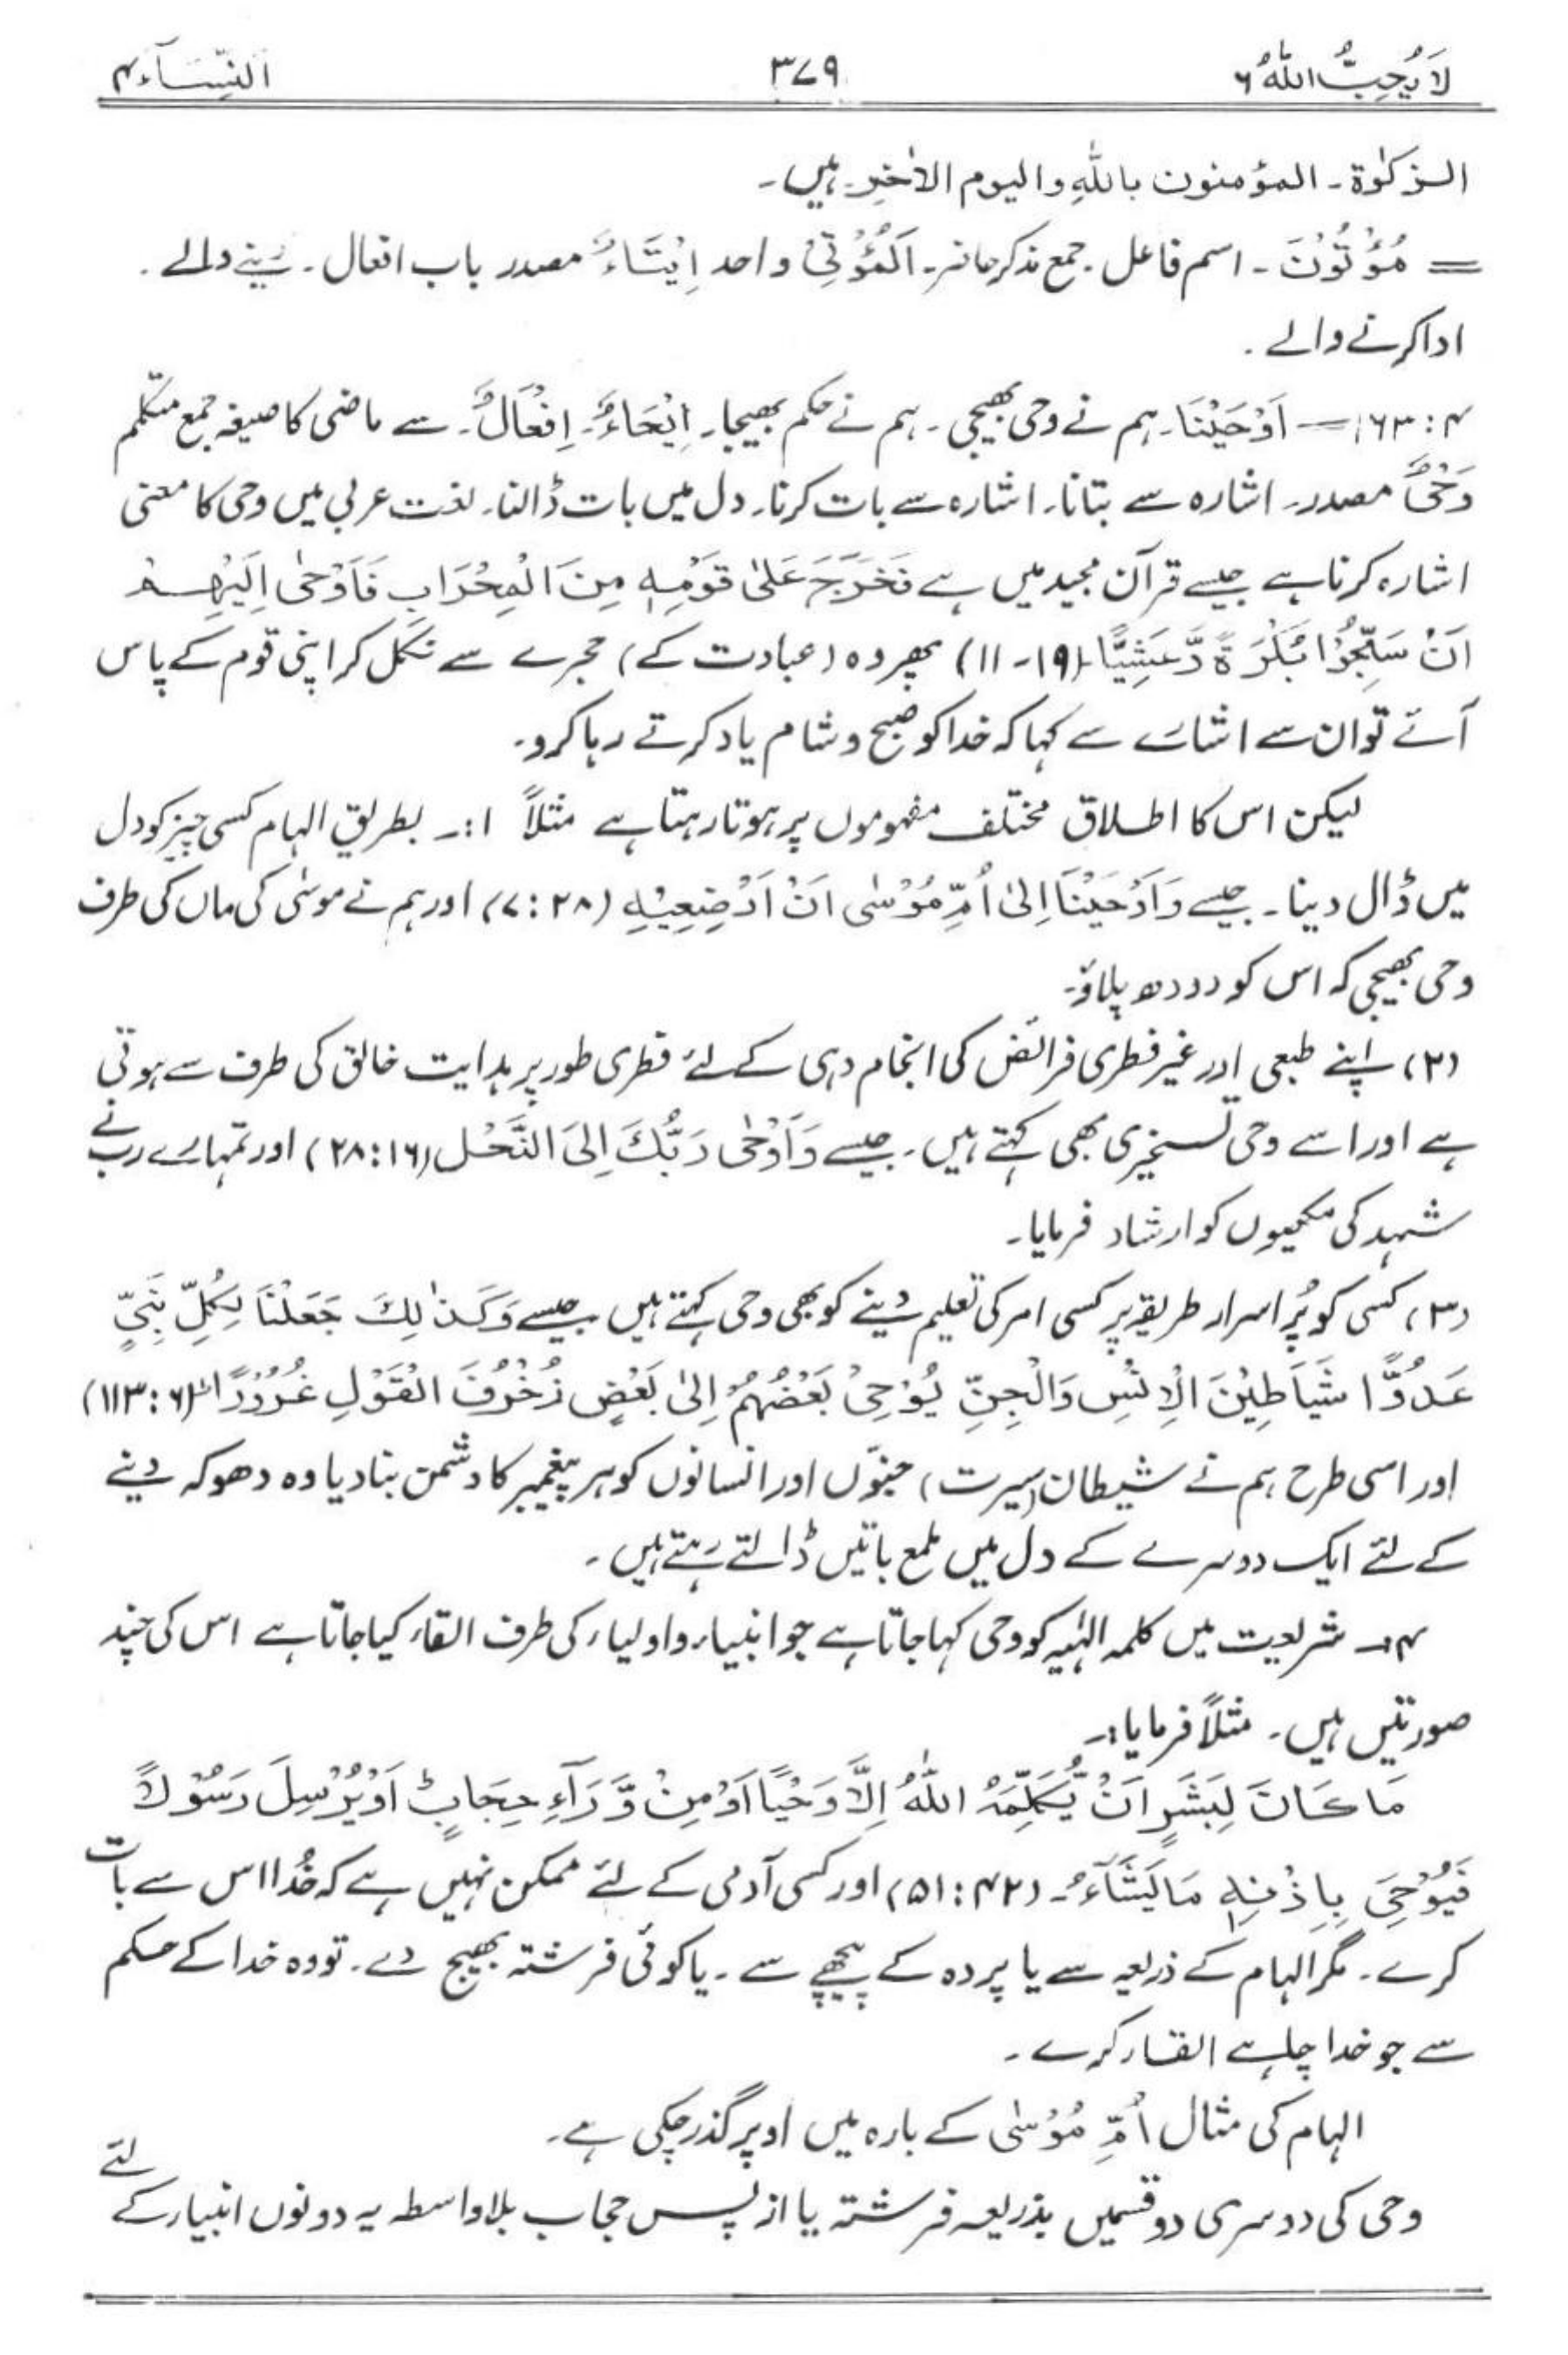 لَا یُحِبُّ اللّٰهُ ۶ ۳۷۹ النِّسَآء ۴
الزکوٰۃ۔ المؤمنون باللّٰهِ والیوم الاٰخِرِ۔ ہیں۔
= مُؤْتُوْنَ۔ اسم فاعل۔ جمع مذکر حاضر۔ اَلْمُؤْتِیْ واحد اِیْتَاءٌ مصدر باب افعال۔ دینے والے۔
ادا کرنے والے۔
۴ : ۱۶۳ = اَوْحَیْنَا۔ ہم نے وحی بھیجی۔ ہم نے حکم بھیجا۔ اِیْحَاءٌ۔ اِفْعَالٌ۔ سے ماضی کا صیغہ جمع متکلم
وَحْیٌ مصدر۔ اشارہ سے بتانا۔ اشارہ سے بات کرنا۔ دل میں بات ڈالنا۔ لغت عربی میں وحی کا معنی
اشارہ کرنا ہے جیسے قرآن مجید میں ہے فَخَرَجَ عَلٰی قَوْمِہٖ مِنَ الْمِحْرَابِ فَاَوْحٰی اِلَیْهِمْ
اَنْ سَبِّحُوْا بُکْرَۃً وَّعَشِیًّا (۱۹۔۱۱) پھر وہ (عبادت کے) حجرے سے نکل کر اپنی قوم کے پاس
آئے تو ان سے اشارے سے کہا کہ خدا کو صبح و شام یاد کرتے رہا کرو۔
لیکن اس کا اطلاق مختلف مفہوموں پر ہوتا رہتا ہے مثلاً ۱:۔ بطریق الہام کسی چیز کو دل
میں ڈال دینا۔ جیسے وَاَوْحَیْنَا اِلٰی اُمِّ مُوْسٰی اَنْ اَرْضِعِیْہِ (۲۸ : ۷) اور ہم نے موسیٰ کی ماں کی طرف
وحی بھیجی کہ اس کو دودھ پلاؤ۔
(۲) اپنے طبعی اور غیر فطری فرائض کی انجام دہی کے لئے فطری طور پر ہدایت خالق کی طرف سے ہوتی
ہے اور اسے وحی تسخیری بھی کہتے ہیں۔ جیسے وَاَوْحٰی رَبُّکَ اِلَی النَّحْلِ (۱۶ : ۲۸) اور تمہارے رب نے
شہد کی مکھیوں کو ارشاد فرمایا۔
(۳) کسی کو پُر اسرار طریقہ پر کسی امر کی تعلیم دینے کو بھی وحی کہتے ہیں جیسے وَکَذٰلِکَ جَعَلْنَا لِکُلِّ نَبِیٍّ
عَدُوًّا شَیَاطِیْنَ الْاِنْسِ وَالْجِنِّ یُوْحِیْ بَعْضُهُمْ اِلٰی بَعْضٍ زُخْرُفَ الْقَوْلِ غُرُوْرًا (۶ : ۱۱۳)
اور اسی طرح ہم نے شیطان (سیرت) جنوں اور انسانوں کو ہر پیغمبر کا دشمن بنا دیا وہ دھوکہ دینے
کے لئے ایک دوسرے کے دل میں ملمع باتیں ڈالتے رہتے ہیں۔
۴۔ شریعت میں کلمہ الٰہیہ کو وحی کہا جاتا ہے جو انبیاء و اولیاء کی طرف القاء کیا جاتا ہے اس کی چند
صورتیں ہیں۔ مثلاً فرمایا:۔
مَا کَانَ لِبَشَرٍ اَنْ یُّکَلِّمَہُ اللّٰهُ اِلَّا وَحْیًا اَوْ مِنْ وَّرَآءِ حِجَابٍ اَوْ یُرْسِلَ رَسُوْلًا
فَیُوْحِیَ بِاِذْنِہٖ مَا یَشَآءُ۔ (۴۲ : ۵۱) اور کسی آدمی کے لئے ممکن نہیں ہے کہ خُدا اس سے بات
کرے۔ مگر الہام کے ذریعہ سے یا پردہ کے پیچھے سے۔ یا کوئی فرشتہ بھیج دے۔ تو وہ خدا کے حکم
سے جو خدا چاہے القاء کرے۔
الہام کی مثال اُمِّ مُوْسٰی کے بارہ میں اوپر گذر چکی ہے۔
وحی کی دوسری دو قسمیں بذریعہ فرشتہ یا از پس حجاب بلا واسطہ یہ دونوں انبیاء کے لئے